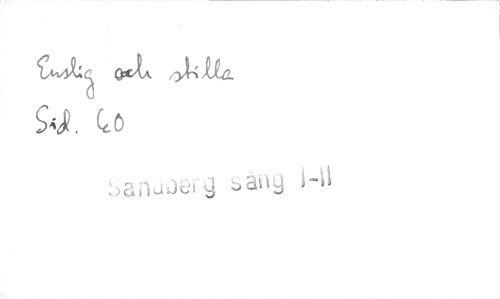 Enslig och stilla
Sid. 60
Sandberg sång I-II